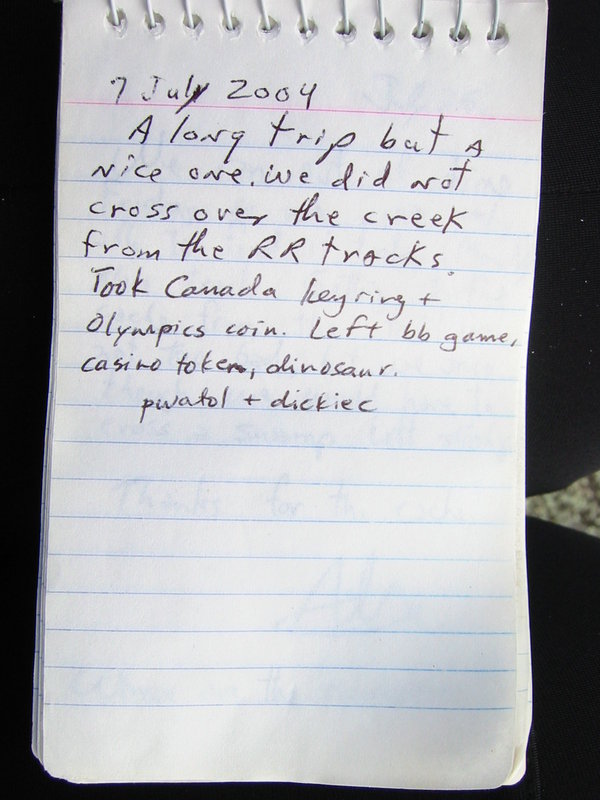 7 July 2004
A long trip but a
nice one. we did not
cross over the creek
from the RR tracks.
Took Canada keyring +
Olympics coin. Left bb game,
casino token, dinosaur.
pwatol + dickiec
Thanks for the cache